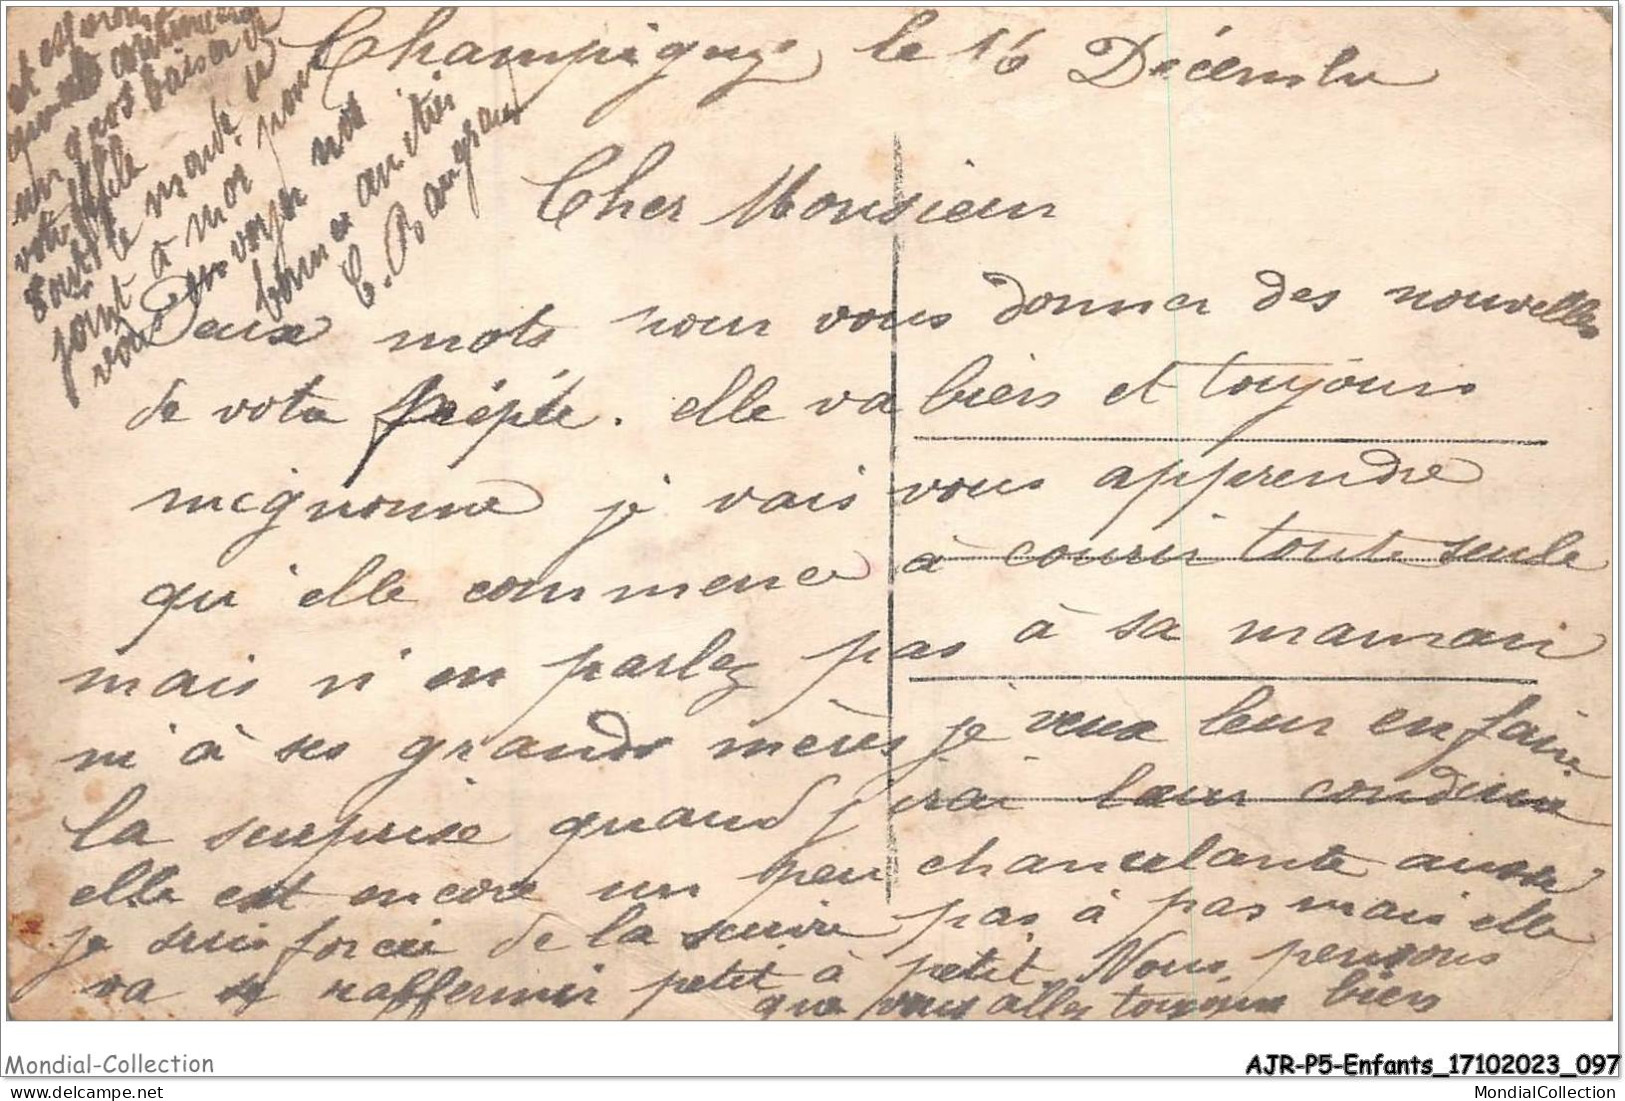 Champigny le 16 Décembre
Cher Monsieur
Deux mots pour vous donner des nouvelles
de votre fépée. elle va bien et toujours
mignonne je vais vous apprendre
qu'elle commence à courir toute seule
mais n'en parlez pas à sa maman
ni à ses grands mères je veux leur en faire
la surprise quand j'irai leur conduire
elle est encore un peu chancelante aussi
je suis forcée de la suivre pas à pas mais elle
va se raffermir petit à petit. Nous pensons
que vous allez toujours bien
et
un gros baiser de
votre fille
tout le monde se
joint à moi pour
vous envoyer nos
bonnes amitiés
Mondial-Collection
AJR-P5-Enfants_17102023_097
MondialCollection